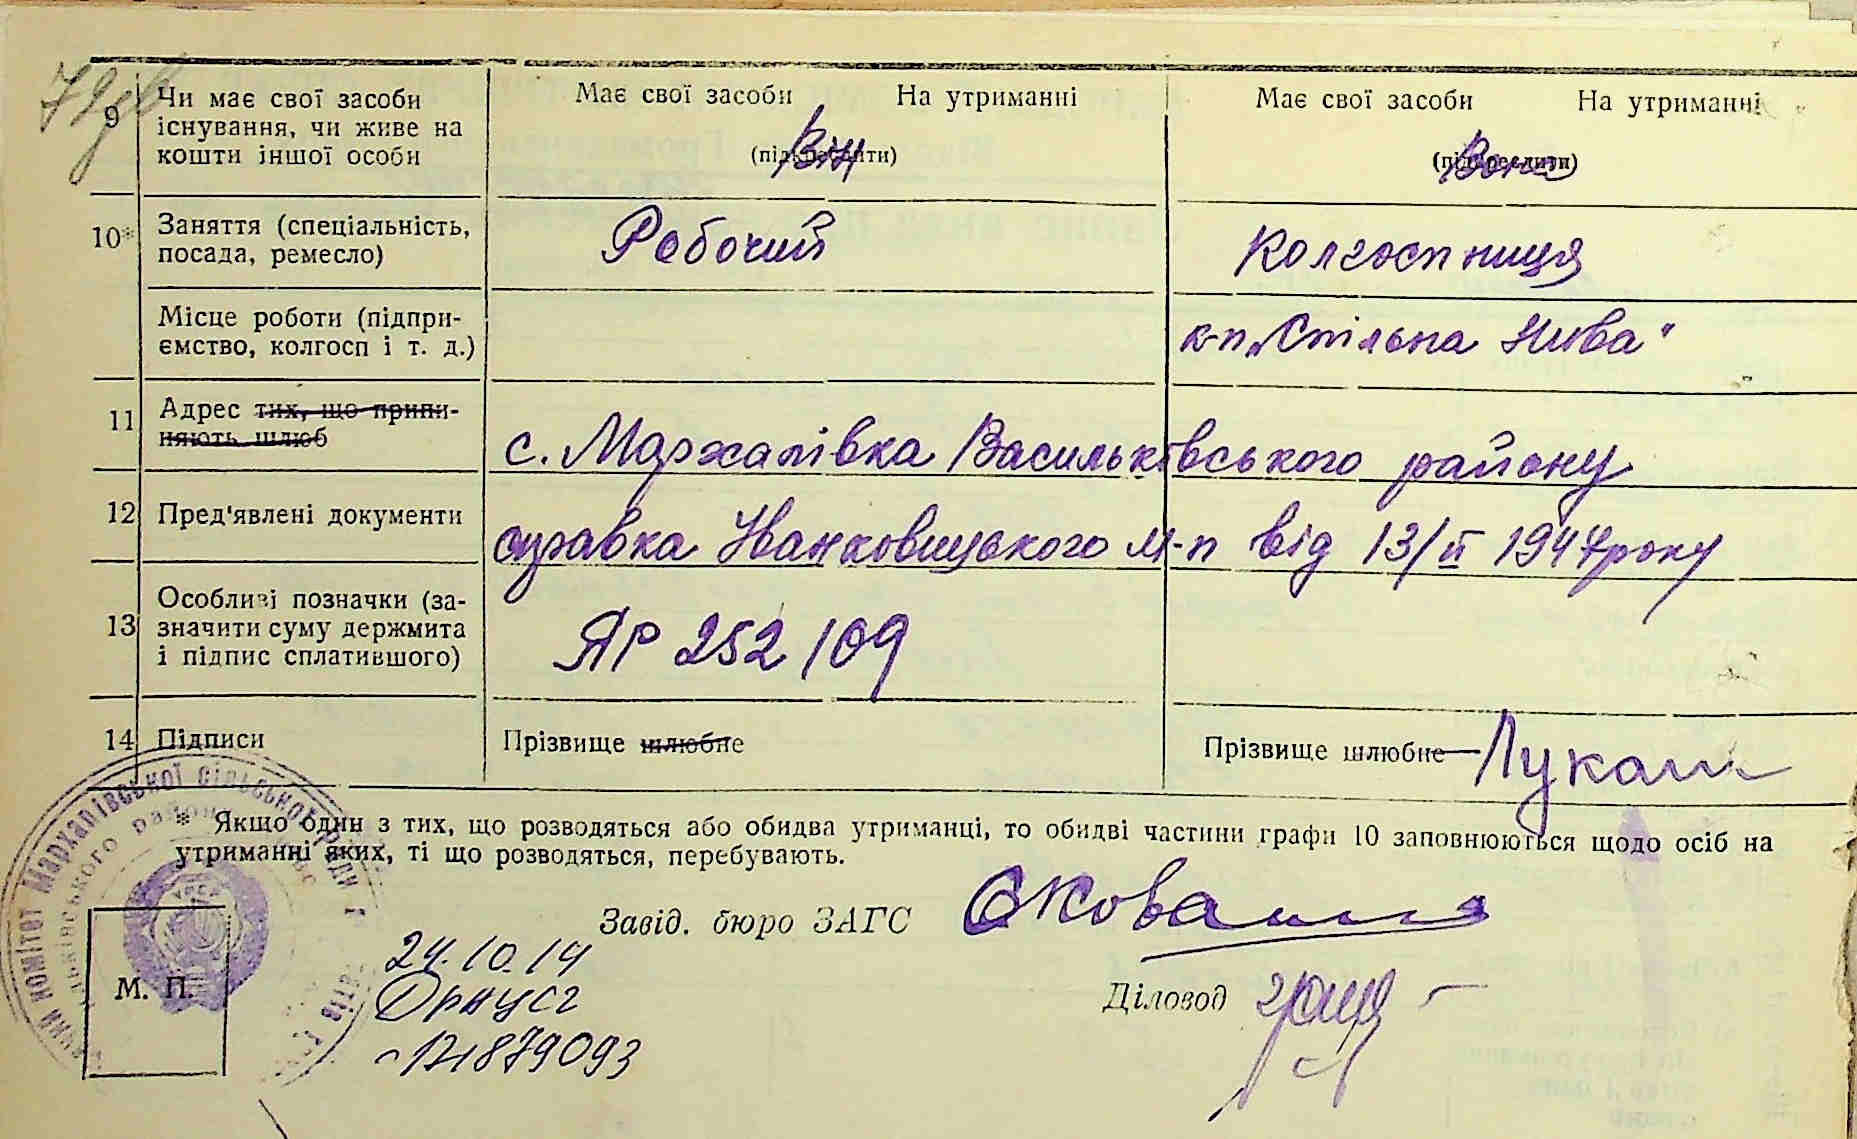 9 Чи має свої засоби існування, чи живе на кошти іншої особи
Має свої засоби На утриманні
(підкреслити)
Він
Має свої засоби На утриманні
(підкреслити)
Вона
10* Заняття (спеціальність, посада, ремесло)
Робочий
Колгоспниця
Місце роботи (підприємство, колгосп і т. д.)
к-п „Спільна Нива"
11 Адрес тих, що припиняють шлюб
с. Мархалівка Васильківського району
12 Пред'явлені документи
справка Іванковицького м-п від 13/II 1947 року
13 Особливі позначки (зазначити суму держмита і підпис сплатившого)
ЯР 252109
14 Підписи
Прізвище шлюбне
Прізвище шлюбне Лукаш
* Якщо один з тих, що розводяться або обидва утриманці, то обидві частини графи 10 заповнюються щодо осіб на
утриманні яких, ті що розводяться, перебувають.
Завід. бюро ЗАГС
24.10.14
М. П.
Діловод
121879093
комітет Мархалівської сільської ради
району
УРСР